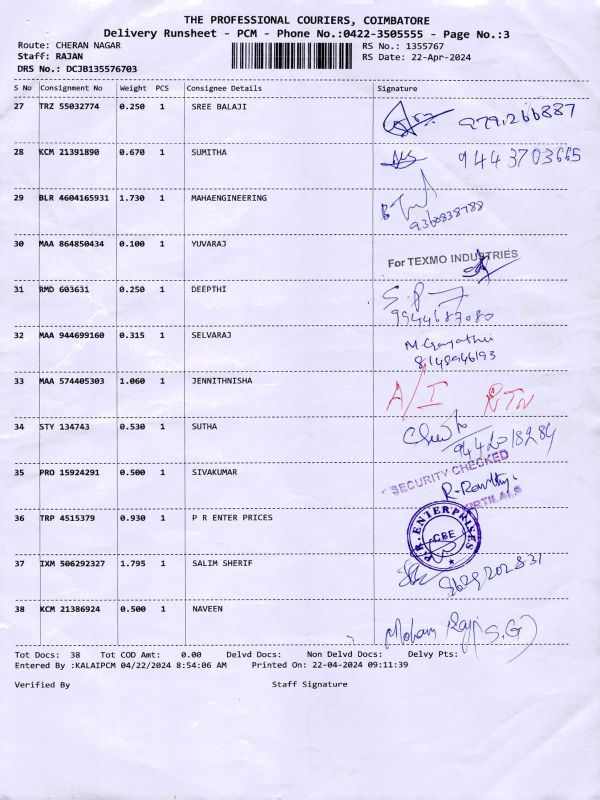 THE PROFESSIONAL COURIERS, COIMBATORE
Delivery Runsheet - PCM - Phone No.:0422-3505555 - Page No.:3
Route: CHERAN NAGAR RS No.: 1355767
Staff: RAJAN RS Date: 22-Apr-2024
DRS No.: DCJB135576703
S No Consignment No Weight PCS Consignee Details Signature
27 TRZ 55032774 0.250 1 SREE BALAJI
28 KCM 21391890 0.670 1 SUMITHA 9443703665
29 BLR 4604165931 1.730 1 MAHAENGINEERING
9360838788
30 MAA 864850434 0.100 1 YUVARAJ For TEXMO INDUSTRIES
31 RMD 603631 0.250 1 DEEPTHI S.P
9944687080
32 MAA 944699160 0.315 1 SELVARAJ M Gayathri
8148946193
33 MAA 574405303 1.060 1 JENNITHNISHA A/I RTN
34 STY 134743 0.530 1 SUTHA
9442018284
SECURITY CHECKED
35 PRO 15924291 0.500 1 SIVAKUMAR
KIRTILALS
36 TRP 4515379 0.930 1 P R ENTER PRICES P.R. ENTERPRISES
CBE
37 IXM 506292327 1.795 1 SALIM SHERIF
38 KCM 21386924 0.500 1 NAVEEN
Mohan Raj (S.G)
Tot Docs: 38 Tot COD Amt: 0.00 Delvd Docs: Non Delvd Docs: Delvy Pts:
Entered By :KALAIPCM 04/22/2024 8:54:06 AM Printed On: 22-04-2024 09:11:39
Verified By Staff Signature